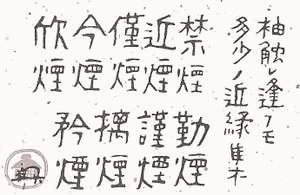 袖触レ逢フモ
多少ノ近縁
禁煙
近煙
僅煙
今煙
欣煙
勤煙
謹煙
擒煙
矜煙